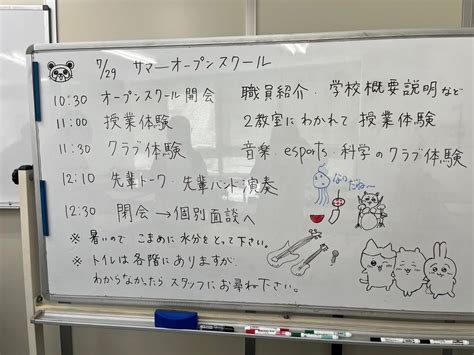 7/29 サマーオープンスクール
10:30 オープンスクール開会 職員紹介・学校概要説明など
11:00 授業体験 2教室にわかれて授業体験
11:30 クラブ体験 音楽・esports・科学のクラブ体験
12:10 先輩トーク・先輩バンド演奏
12:30 閉会→個別面談へ
※ 暑いので こまめに 水分をとって下さい。
※ トイレは各階にありますが、
わからなかったら スタッフにお尋ね下さい。